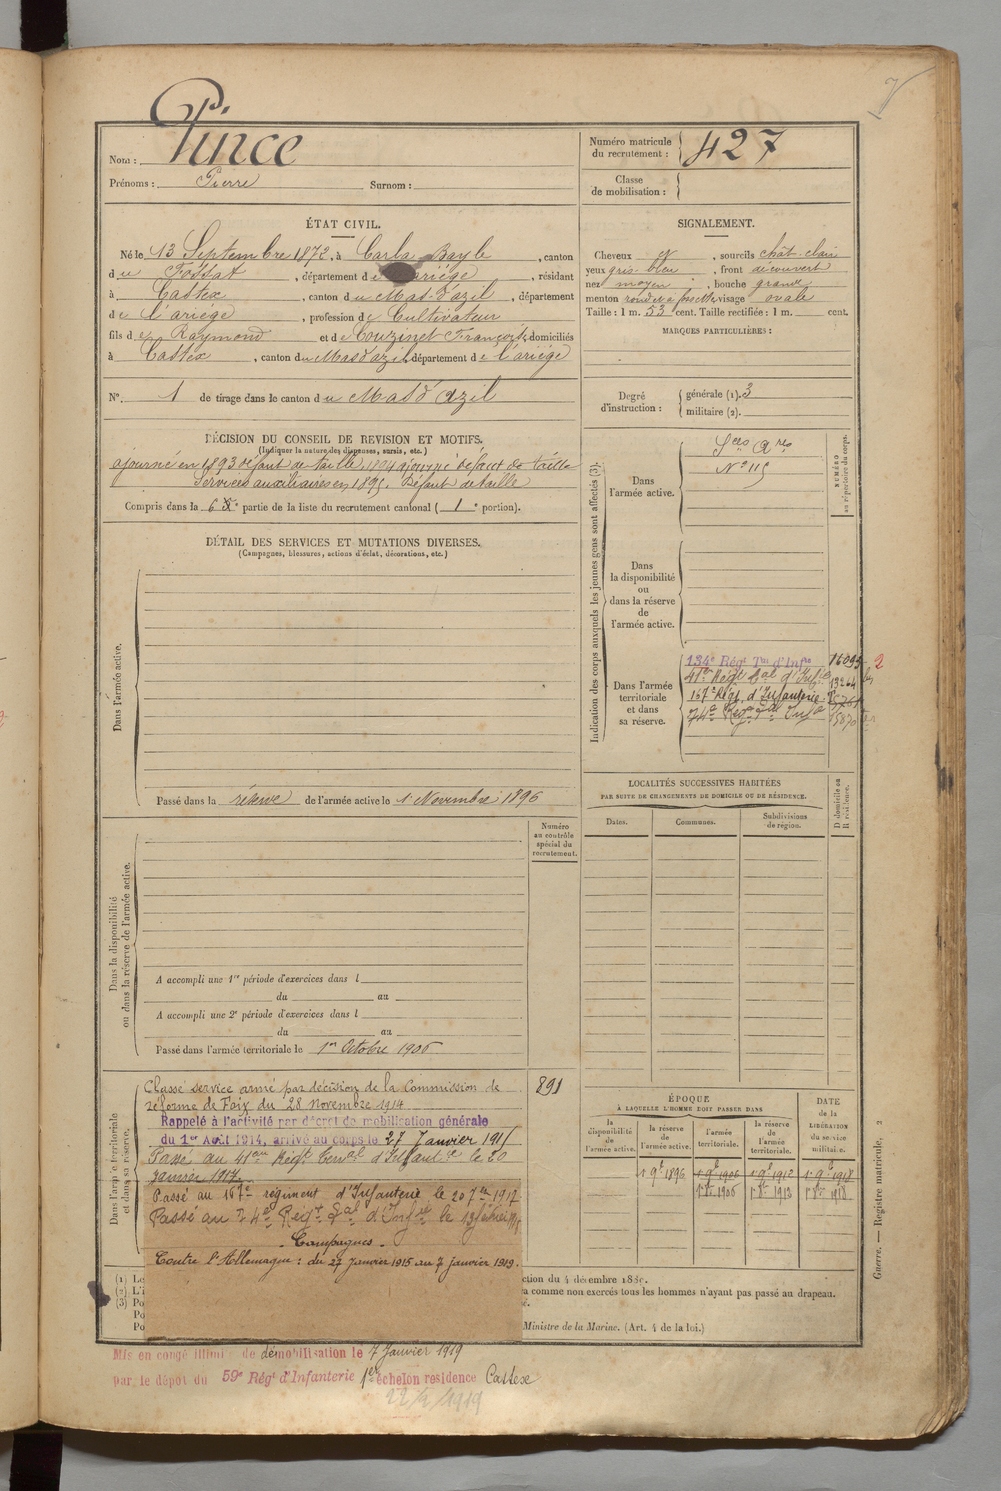 Nom : Pince
Prénoms : Pierre Surnom :
Numéro matricule du recrutement : 427
Classe de mobilisation :
ÉTAT CIVIL.
Né le 13 Septembre 1872, à Carla Bayle, canton
du Fossat, département de l'ariége, résidant
à Castex, canton du Mas-d'azil, département
de l'ariége, profession de Cultivateur
fils de Raymond et de Couzinet Françoise, domiciliés
à Castex, canton du Mas d'azil, département de l'ariége
N° 1 de tirage dans le canton du Mas d'azil
DÉCISION DU CONSEIL DE REVISION ET MOTIFS.
(Indiquer la nature des dispenses, sursis, etc.)
ajourné en 1893 défaut de taille, 1894 ajourné défaut de taille
Services auxiliaires en 1895. Défaut de taille
Compris dans la 6e partie de la liste du recrutement cantonal ( 1e portion).
DÉTAIL DES SERVICES ET MUTATIONS DIVERSES.
(Campagnes, blessures, actions d'éclat, décorations, etc.)
Dans l'armée active.
Passé dans la réserve de l'armée active le 1 Novembre 1896
Dans la disponibilité ou dans la réserve de l'armée active.
Numéro au contrôle spécial du recrutement.
A accompli une 1re période d'exercices dans l
du au
A accompli une 2e période d'exercices dans l
du au
Passé dans l'armée territoriale le 1er Octobre 1906
Dans l'armée territoriale et dans sa réserve.
891
Classé service armé par décision de la Commission de
réforme de Foix du 28 novembre 1914
Rappelé à l'activité par décret de mobilisation générale
du 1er Août 1914, arrivé au corps le 27 Janvier 1915
Passé au 41eme Régt Terral d'Infanterie le 20
janvier 1917.
Passé au 157e régiment d'Infanterie le 20 7bre 1917
Passé au 74e Regt
Campagnes
Contre l'Allemagne : du 27 janvier 1915 au 7 janvier 1919.
SIGNALEMENT.
Cheveux et, sourcils chât-clair
yeux gris-bleu, front découvert
nez moyen, bouche grande
menton rond et à fossette visage ovale
Taille : 1 m. 53 cent. Taille rectifiée : 1 m. cent.
MARQUES PARTICULIÈRES :
Degré d'instruction :
générale (1). 3
militaire (2).
Indication des corps auxquels les jeunes gens sont affectés (3).
NUMÉRO au répertoire du corps.
Dans l'armée active.
Sces Ares
N° 115
Dans la disponibilité ou dans la réserve de l'armée active.
Dans l'armée territoriale et dans sa réserve.
134e Régt Tal d'Infie 16093 2
41e Régt 13264
157e Régt d'Infanterie
74e 15870
LOCALITÉS SUCCESSIVES HABITÉES
PAR SUITE DE CHANGEMENTS DE DOMICILE OU DE RÉSIDENCE.
Dates. Communes. Subdivisions de région.
D domicile ou R résidence.
ÉPOQUE
À LAQUELLE L'HOMME DOIT PASSER DANS
la disponibilité de l'armée active.
la réserve de l'armée active.
l'armée territoriale.
la réserve de l'armée territoriale.
DATE de la LIBÉRATION du service militaire.
1 9bre 1896 1 9bre 1906 1 9bre 1912 1 9bre 1918
1er 8bre 1906 1er 8bre 1913 1er 8bre 1918
(1) Le
(2) L'i
(3) Po
Po
Po
ction du 4 décembre 188
a comme non exercés tous les hommes n'ayant pas passé au drapeau.
Ministre de la Marine. (Art. 4 de la loi.)
Guerre. — Registre matricule, 2
Mis en congé illimité de démobilisation le 7 janvier 1919
par le dépôt du 59e Régt d'Infanterie 1er échelon residence Castex